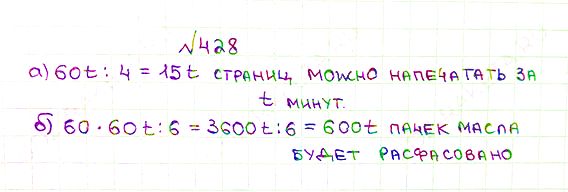 √428
а) 60t : 4 = 15t страниц можно напечатать за
t минут.
б) 60 · 60t : 6 = 3600t : 6 = 600t пачек масла
будет расфасовано